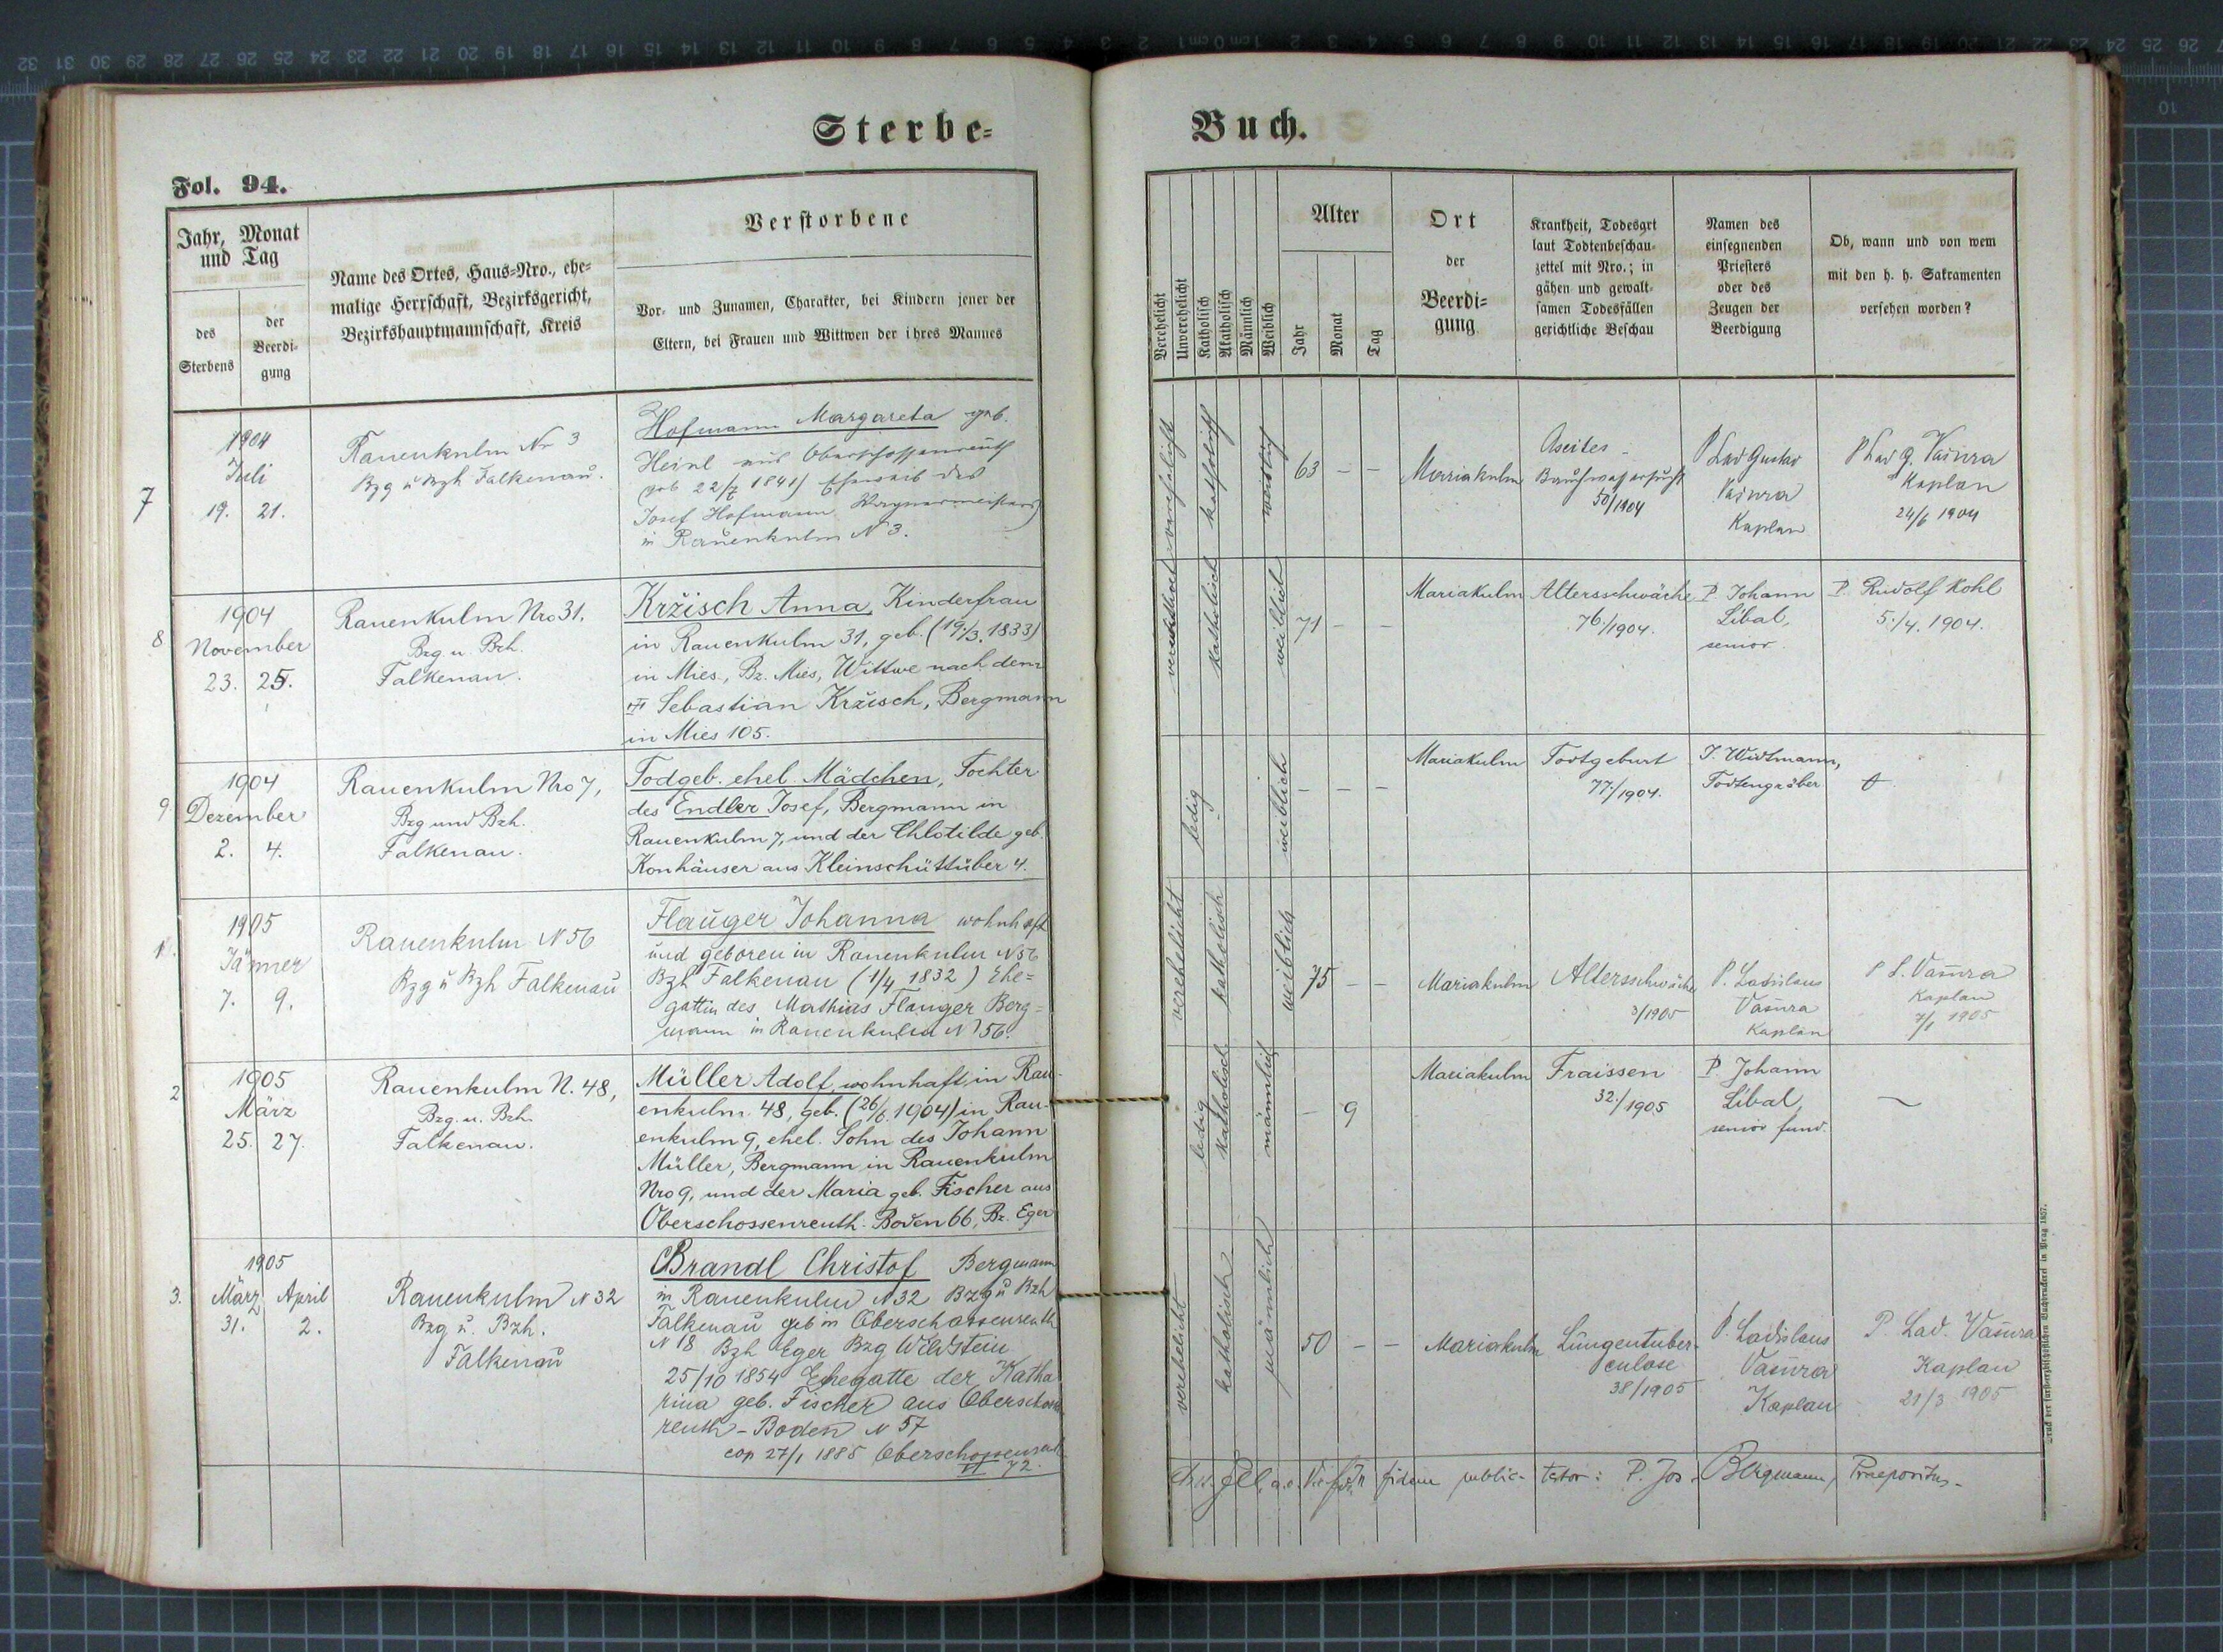 Sterbe=
Buch.
Fol. 94.
Jahr, Monat
und Tag
des
Sterbens
der
Beerdi-
gung
Name des Ortes, Haus=Nro., ehe=
malige Herrschaft, Bezirksgericht,
Bezirkshauptmannschaft, Kreis
Verstorbene
Vor- und Zunamen, Charakter, bei Kindern jener der
Eltern, bei Frauen und Wittwen der ihres Mannes
Verehelicht
Unverehelicht
Katholisch
Akatholisch
Männlich
Weiblich
Alter
Jahr
Monat
Tag
Ort
der
Beerdi=
gung
Krankheit, Todesart
laut Todtenbeschau-
zettel mit Nro.; in
gähen und gewalt-
samen Todesfällen
gerichtliche Beschau
Namen des
einsegnenden
Priesters
oder des
Zeugen der
Beerdigung
Ob, wann und von wem
mit den h. h. Sakramenten
versehen worden?
7
1904
Juli
19. 21.
Rauenkulm Nr 3
Bzg u Bzh Falkenau.
Hofmann Margareta geb.
Heinl aus Oberschossenreuth
geb 22/7 1841) Eheweib des
Josef Hofmann Wagnermeisters
in Rauenkulm N 3.
verehelicht
katholisch
weiblich
63 - -
Mariakulm
Ascites -
Bauchwassersucht
50/1904
P Lad Gustav
Vašura
Kaplan
P Lad G. Vašura
Kaplan
24/6 1904
8
1904
November
23. 25.
Rauenkulm Nro 31.
Bzg. u. Bzh.
Falkenau.
Kržisch Anna, Kinderfrau
in Rauenkulm 31, geb. (19./3. 1833)
in Mies, Bz. Mies, Wittwe nach dem
Sebastian Kržisch, Bergmann
in Mies 105.
katholisch
weiblich
71 - -
Mariakulm
Altersschwäche
76./1904.
P. Johann
Líbal,
senior.
P. Rudolf Kohl
5./4. 1904.
9
1904
Dezember
2. 4.
Rauenkulm Nro 7,
Bzg und Bzh.
Falkenau.
Todgeb. ehel. Mädchen, Tochter
des Endler Josef, Bergmann in
Rauenkulm 7, und der Chlotilde geb.
Konhäuser aus Kleinschüttüber 4.
ledig
weiblich
- - -
Mariakulm
Todtgeburt
77/1904.
J. Widtmann,
Todtengräber
1.
1905
Jänner
7. 9.
Rauenkulm N 56
Bzg u Bzh Falkenau
Flauger Johanna wohnhaft
und geboren in Rauenkulm N 56
Bzh Falkenau (1/4 1832) Ehe=
gattin des Mathias Flauger Berg=
mann in Rauenkulm N 56.
verehelicht
katholisch
weiblich
75 - -
Mariakulm
Altersschwäche
3/1905
P. Ladislaus
Vašura
Kaplan
P L. Vašura
Kaplan
7/1 1905
2
1905
März
25. 27.
Rauenkulm N. 48,
Bzg. u. Bzh.
Falkenau.
Müller Adolf, wohnhaft in Rau-
enkulm 48, geb. (26/6. 1904) in Rau-
enkulm 9, ehel. Sohn des Johann
Müller, Bergmann in Rauenkulm
Nro 9, und der Maria geb. Fischer aus
Oberschossenreuth-Boden 66, Bz. Eger
ledig
katholisch
männlich
- 9
Mariakulm
Fraissen
32./1905
P. Johann
Líbal,
senior fund.
3.
1905
März April
31. 2.
Rauenkulm N 32
Bzg u. Bzh.
Falkenau
Brandl Christof Bergmann
in Rauenkulm N 32 Bzg u Bzh
Falkenau geb in Oberschossenreuth
N 18 Bzh Eger Bzg Wildstein
25/10 1854 Ehegatte der Katha
rina geb. Fischer aus Oberschossen
reuth - Boden N 57
cop 27/1 1885 Oberschossenreuth
72.
verehelicht
katholisch
männlich
50 - -
Mariakulm
Lungentuber-
culose
38/1905
P. Ladislaus
Vašura
Kaplan
P. Lad. Vašura
Kaplan
21/3 1905
fidem public- testor: P. Jos. Bergmann, Praepositus.
Druck der fürsterzbischöflichen Buchdruckerei in Prag 1857.